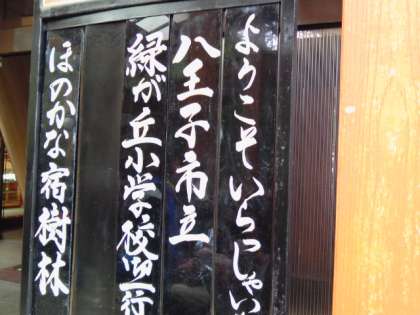 ようこそいらっしゃい
八王子市立
緑が丘小学校御一行
ほのかな宿樹林